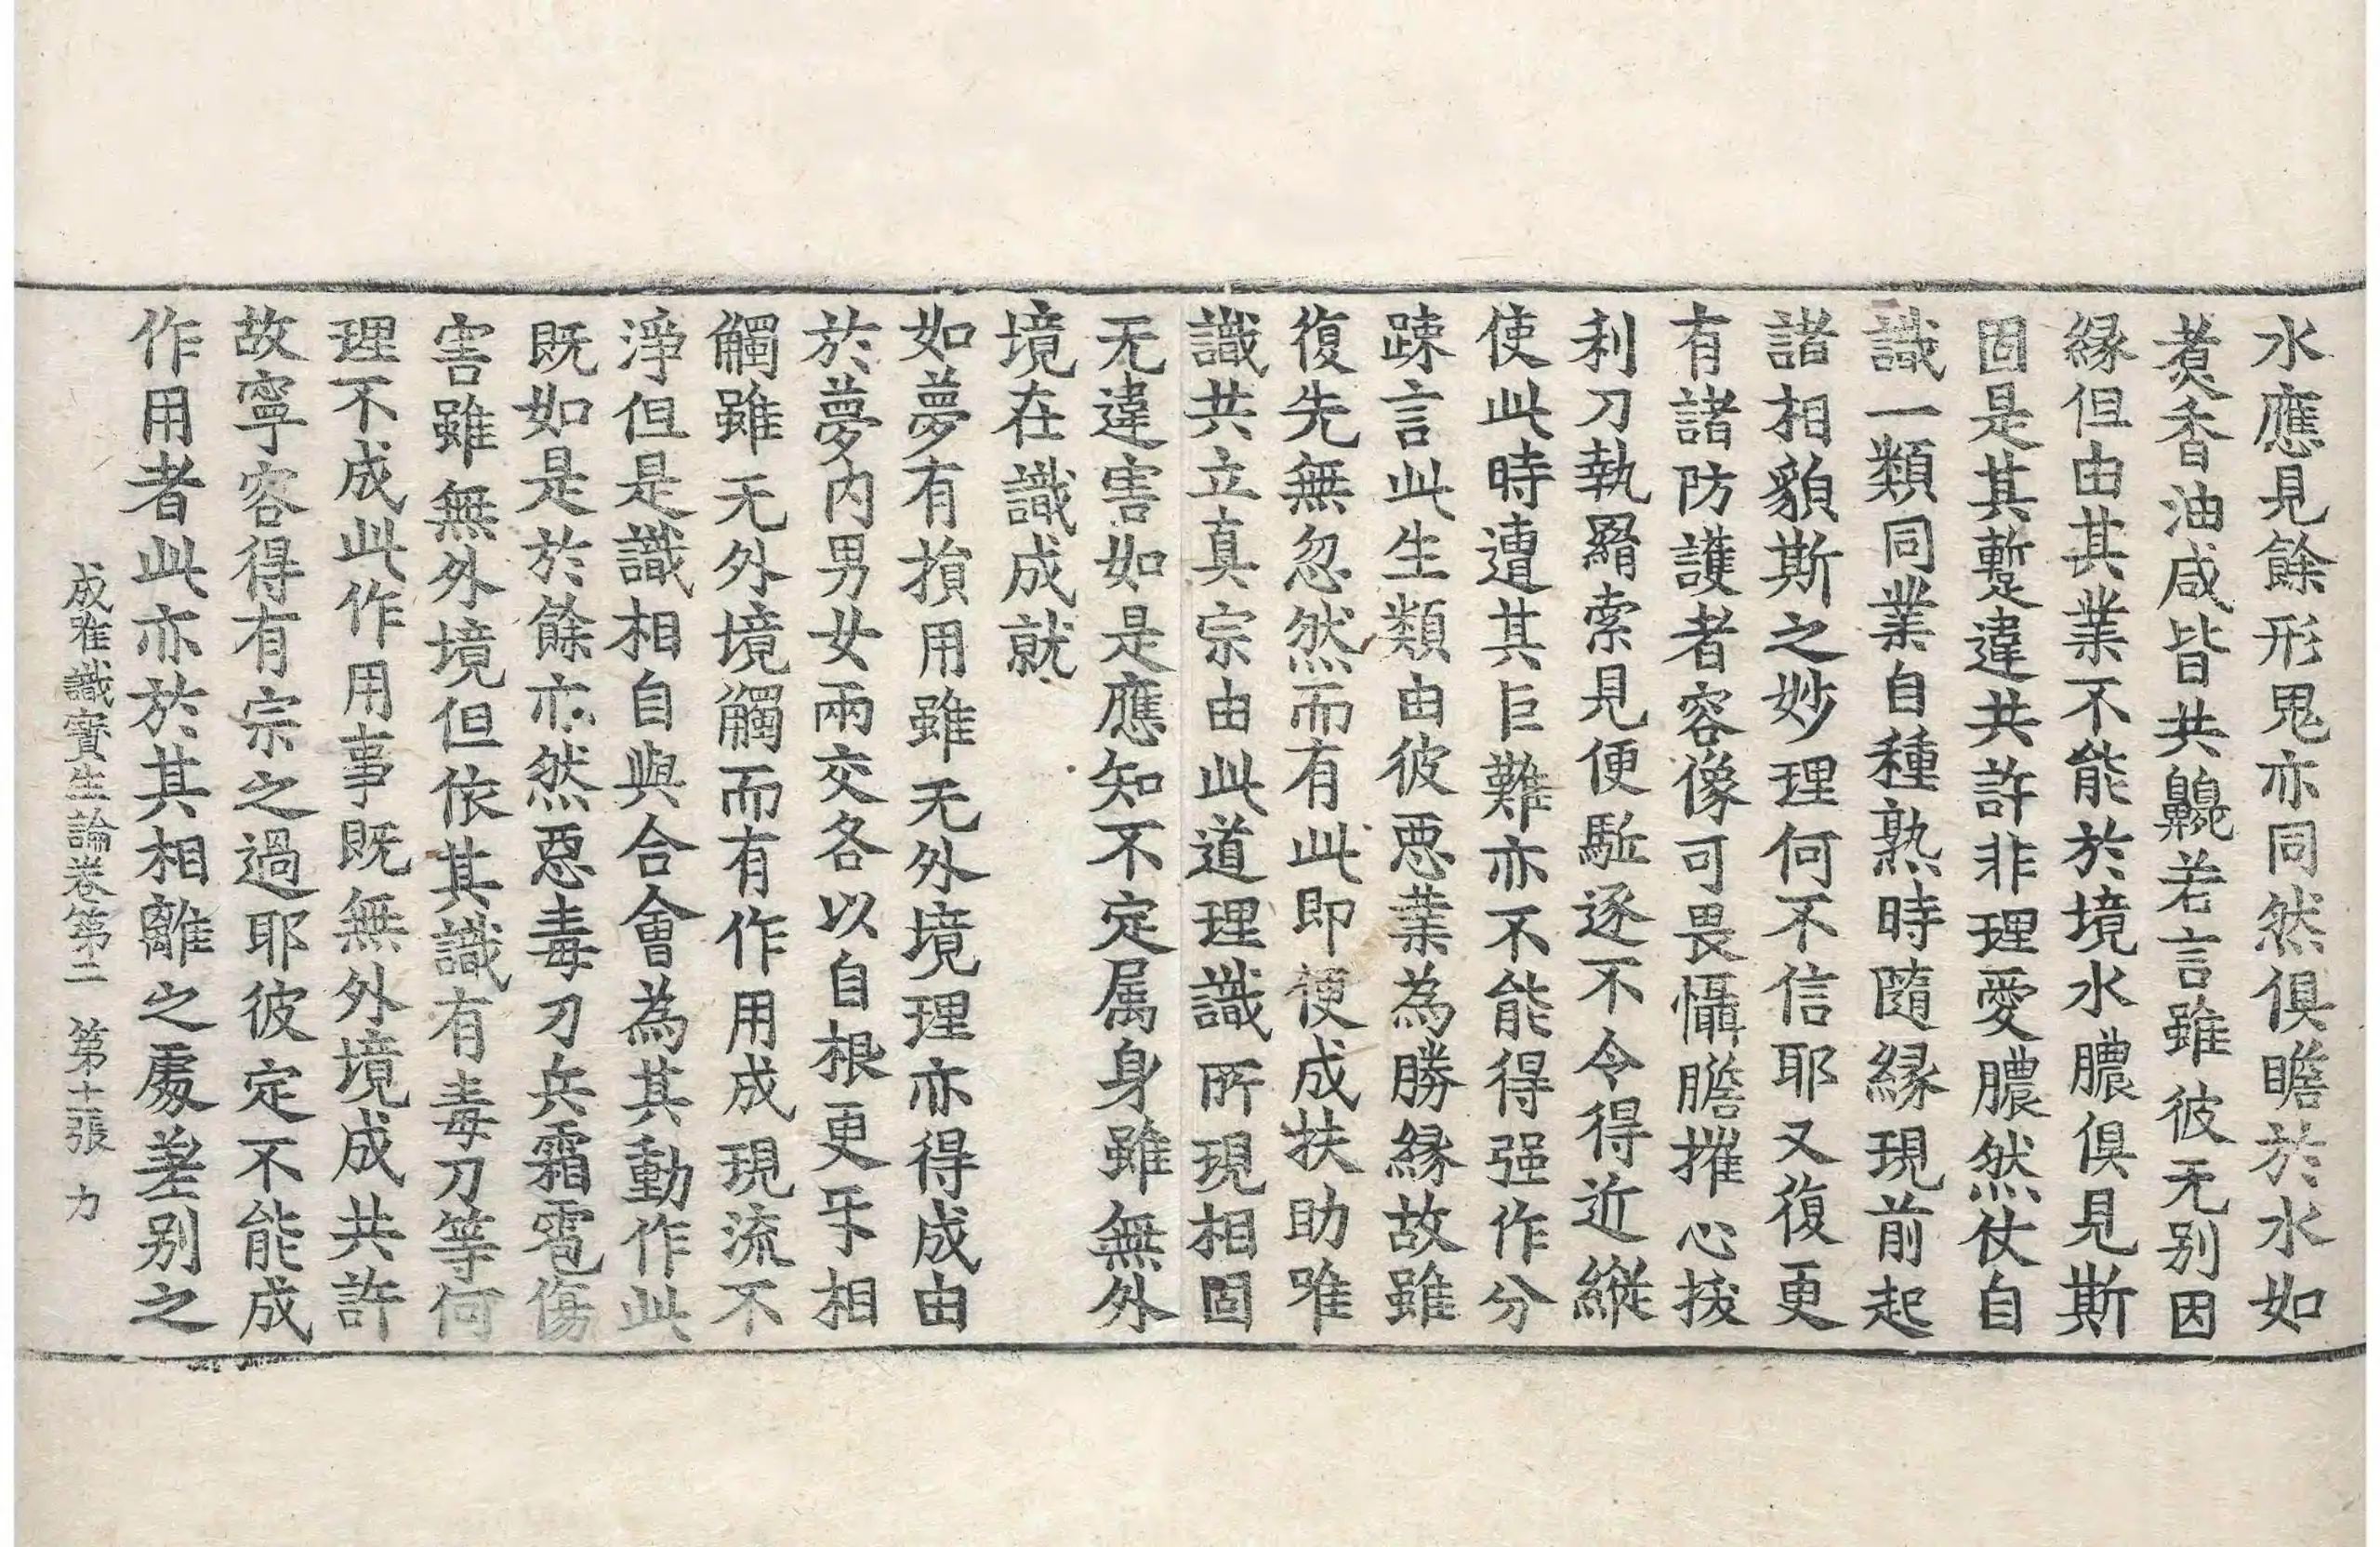 水應見餘形鬼亦同然俱瞻於水如
煑香油咸皆共齅若言雖彼无别因
縁但由其業不能於境水膿俱見斯
固是其蹔違共許非理愛膿然仗自
識一類同業自種熟時隨縁現前起
諸相貌斯之妙理何不信耶又復更
有諸防護者容像可畏懾膽摧心拔
利刀執羂索見便駈逐不令得近縱
使此時遭其巨難亦不能得强作分
踈言此生類由彼惡業為勝縁故雖
復先無忽然而有此即便成扶助唯
識共立真宗由此道理識所現相固
无違害如是應知不定属身雖無外
境在識成就
如夢有損用雖无外境理亦得成由
於夢内男女兩交各以自根更㸦相
觸雖无外境觸而有作用成現流不
淨但是識相自與合會為其動作此
既如是於餘亦然惡毒刀兵霜雹傷
害雖無外境但依其識有毒刀等何
理不成此作用事既無外境成共許
故寧容得有宗之過耶彼定不能成
作用者此亦於其相離之處差别之
成唯識寶生論卷第二 第十張 力